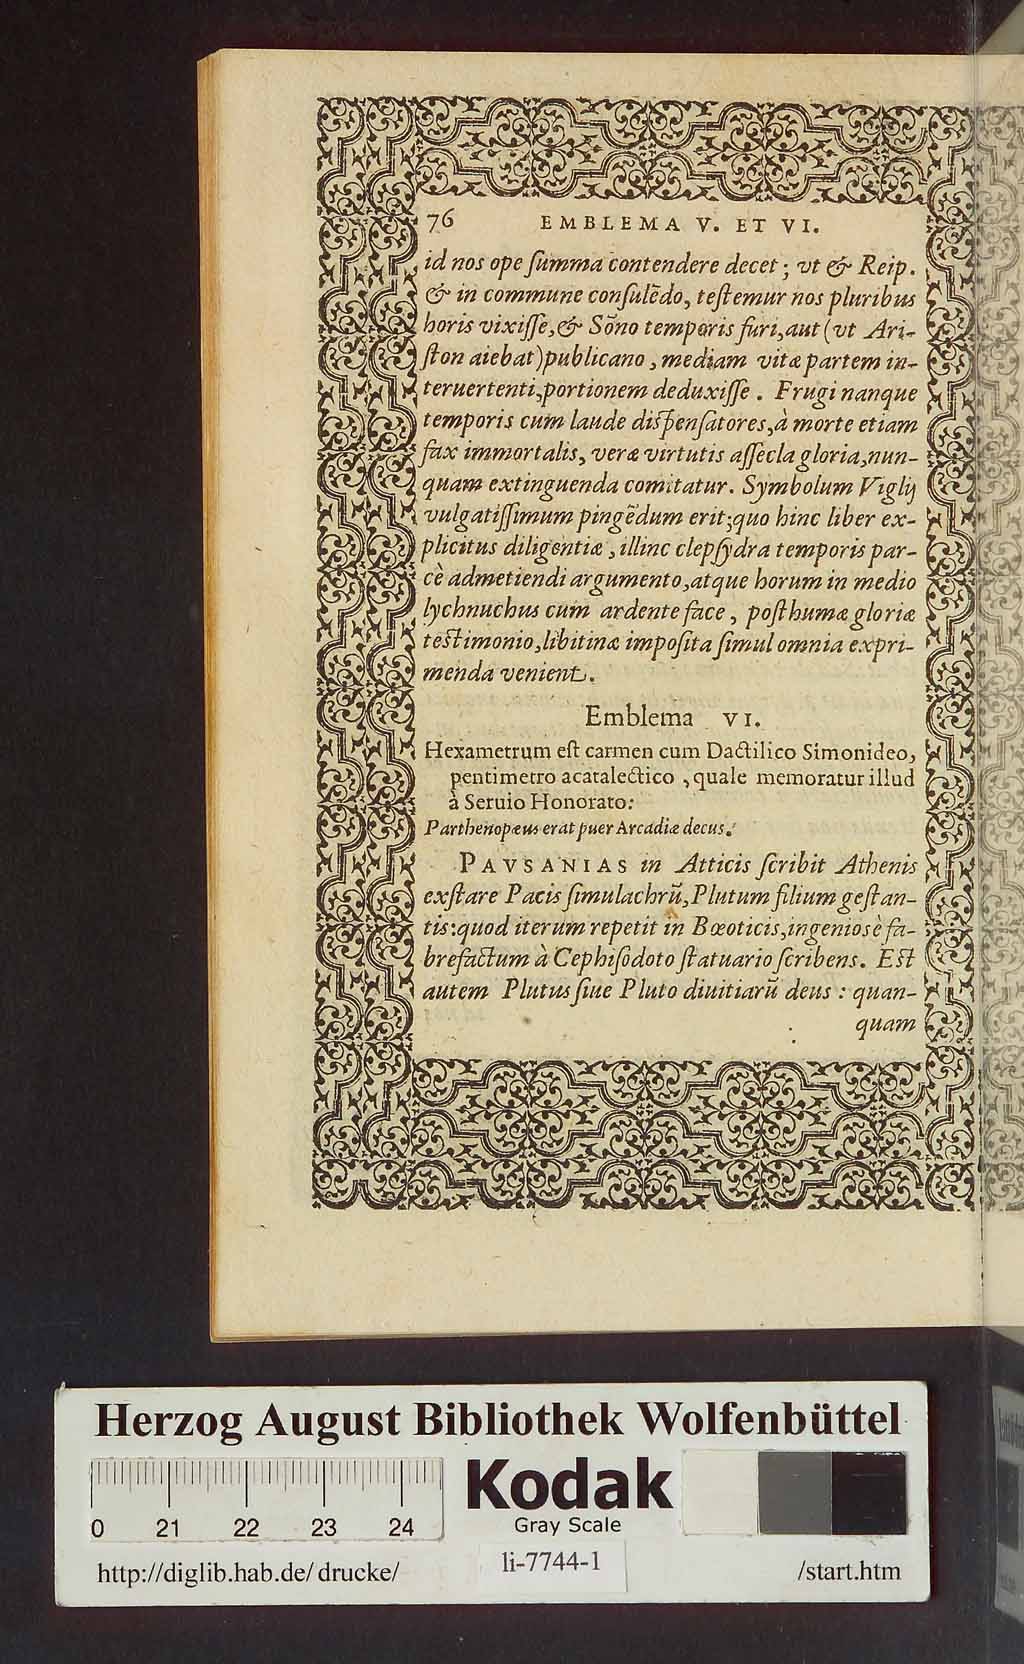 76 EMBLEMA V. ET VI.
id nos ope ſumma contendere decet; vt & Reip.
& in commune conſulẽdo, teſtemur nos pluribus
horis vixiſſe, & Sõno temporis furi, aut (vt Ari-
ſton aiebat) publicano, mediam vitæ partem in-
teruertenti, portionem deduxiſſe. Frugi nanque
temporis cum laude diſpenſatores, à morte etiam
fax immortalis, veræ virtutis aſſecla gloria, nun-
quam extinguenda comitatur. Symbolum Viglij
vulgatiſſimum pingẽdum erit; quo hinc liber ex-
plicitus diligentiæ, illinc clepſydra temporis par-
cè admetiendi argumento, atque horum in medio
lychnuchus cum ardente face, poſthumæ gloriæ
teſtimonio, libitinæ impoſita ſimul omnia expri-
menda venient.
Emblema VI.
Hexametrum eſt carmen cum Dactilico Simonideo,
pentimetro acatalectico, quale memoratur illud
à Seruio Honorato:
Parthenopæus erat puer Arcadiæ decus.
PAVSANIAS in Atticis ſcribit Athenis
exſtare Pacis ſimulachrũ, Plutum filium geſtan-
tis: quod iterum repetit in Bœoticis, ingeniosè fa-
brefactum à Cephiſodoto ſtatuario ſcribens. Eſt
autem Plutus ſiue Pluto diuitiarũ deus: quan-
quam
Herzog August Bibliothek Wolfenbüttel
0 21 22 23 24
Kodak
Gray Scale
http://diglib.hab.de/drucke/ li-7744-1 /start.htm